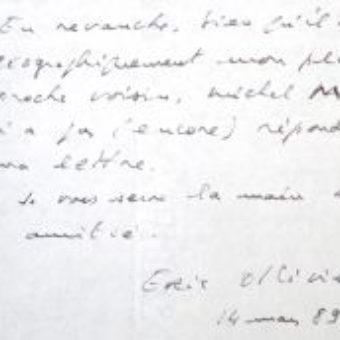 En revanche, bien qu'il
géographiquement mon pl
proche voisin, Michel M
n'a pas (encore) répond
ma lettre.
Je vous serre la main
amitié.
Eric Ollivie
14 mars 89